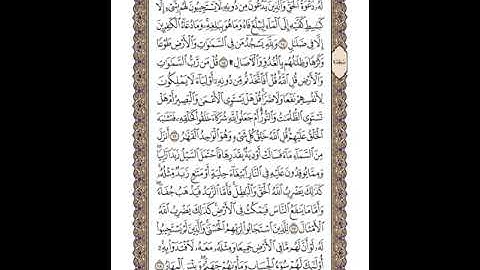 لَهُۥ دَعْوَةُ ٱلْحَقِّ وَٱلَّذِينَ يَدْعُونَ مِن دُونِهِۦ لَا يَسْتَجِيبُونَ لَهُم بِشَىْءٍ إِلَّا
كَبَٰسِطِ كَفَّيْهِ إِلَى ٱلْمَآءِ لِيَبْلُغَ فَاهُ وَمَا هُوَ بِبَٰلِغِهِۦ وَمَا دُعَآءُ ٱلْكَٰفِرِينَ
إِلَّا فِى ضَلَٰلٍ ١٤ وَلِلَّهِ يَسْجُدُ مَن فِى ٱلسَّمَٰوَٰتِ وَٱلْأَرْضِ طَوْعًا
وَكَرْهًا وَظِلَٰلُهُم بِٱلْغُدُوِّ وَٱلْءَاصَالِ ۩ ١٥ قُلْ مَن رَّبُّ ٱلسَّمَٰوَٰتِ
وَٱلْأَرْضِ قُلِ ٱللَّهُ قُلْ أَفَٱتَّخَذْتُم مِّن دُونِهِۦٓ أَوْلِيَآءَ لَا يَمْلِكُونَ
لِأَنفُسِهِمْ نَفْعًا وَلَا ضَرًّا قُلْ هَلْ يَسْتَوِى ٱلْأَعْمَىٰ وَٱلْبَصِيرُ أَمْ هَلْ
تَسْتَوِى ٱلظُّلُمَٰتُ وَٱلنُّورُ أَمْ جَعَلُوا۟ لِلَّهِ شُرَكَآءَ خَلَقُوا۟ كَخَلْقِهِۦ فَتَشَٰبَهَ
ٱلْخَلْقُ عَلَيْهِمْ قُلِ ٱللَّهُ خَٰلِقُ كُلِّ شَىْءٍ وَهُوَ ٱلْوَٰحِدُ ٱلْقَهَّٰرُ ١٦ أَنزَلَ
مِنَ ٱلسَّمَآءِ مَآءً فَسَالَتْ أَوْدِيَةٌۢ بِقَدَرِهَا فَٱحْتَمَلَ ٱلسَّيْلُ زَبَدًا رَّابِيًا
وَمِمَّا يُوقِدُونَ عَلَيْهِ فِى ٱلنَّارِ ٱبْتِغَآءَ حِلْيَةٍ أَوْ مَتَٰعٍ زَبَدٌ مِّثْلُهُۥ
كَذَٰلِكَ يَضْرِبُ ٱللَّهُ ٱلْحَقَّ وَٱلْبَٰطِلَ فَأَمَّا ٱلزَّبَدُ فَيَذْهَبُ جُفَآءً
وَأَمَّا مَا يَنفَعُ ٱلنَّاسَ فَيَمْكُثُ فِى ٱلْأَرْضِ كَذَٰلِكَ يَضْرِبُ ٱللَّهُ
ٱلْأَمْثَالَ ١٧ لِلَّذِينَ ٱسْتَجَابُوا۟ لِرَبِّهِمُ ٱلْحُسْنَىٰ وَٱلَّذِينَ لَمْ يَسْتَجِيبُوا۟
لَهُۥ لَوْ أَنَّ لَهُم مَّا فِى ٱلْأَرْضِ جَمِيعًا وَمِثْلَهُۥ مَعَهُۥ لَٱفْتَدَوْا۟ بِهِۦٓ
أُو۟لَٰٓئِكَ لَهُمْ سُوٓءُ ٱلْحِسَابِ وَمَأْوَىٰهُمْ جَهَنَّمُ وَبِئْسَ ٱلْمِهَادُ ١٨